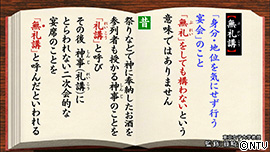 【無礼講】
「身分・地位を気にせず行う
宴会」のこと
「無礼」をしても構わないという
意味ではありません
昔
祭りなどで神に奉納したお酒を
参列者も授かる神事のことを
「礼講」と呼び
その後 神事「礼講」に
とらわれない二次会的な
宴席のことを
「無礼講」と呼んだといわれる
©NTV